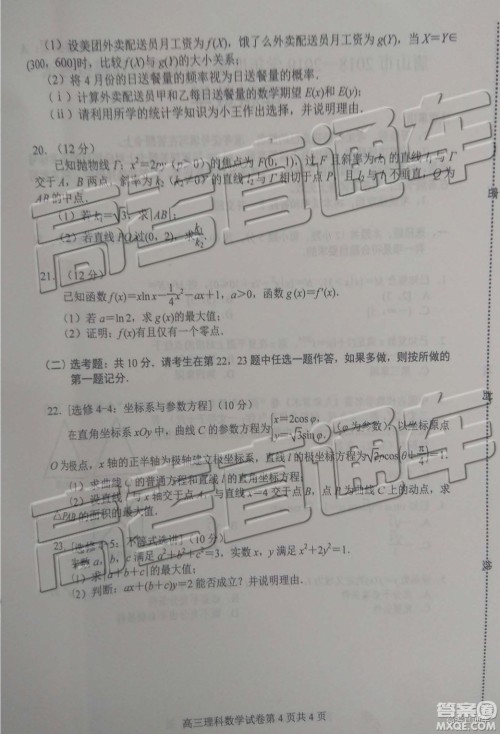 (1)设美团外卖配送员月工资为f(X),饿了么外卖配送员月工资为g(Y),当X=Y∈
(300,600]时,比较f(X)与g(Y)的大小关系;
(2)将4月份的日送餐量的频率视为日送餐量的概率.
(ⅰ)计算外卖配送员甲和乙每日送餐量的数学期望E(X)和E(Y);
(ⅱ)请利用所学的统计学知识为小王作出选择,并说明理由.
20.(12分)
已知抛物线Γ:x²=2py(p>0)的焦点为F(0,1),过F且斜率为k₁的直线l₁与Γ
交于A,B两点,斜率为k₂(k₂≠0)的直线l₂与Γ相切于点P,且l₁与l₂不垂直,Q为
AB的中点.
(1)若k₁=√3,求|AB|;
(2)若直线PQ过(0,2),求k₁/k₂.
21.(12分)
已知函数f(x)=xlnx-1/4x²-ax+1,a>0,函数g(x)=f′(x).
(1)若a=ln2,求g(x)的最大值;
(2)证明:f(x)有且仅有一个零点.
(二)选考题:共10分.请考生在第22、23题中任选一题作答,如果多做,则按所做的
第一题记分.
22.[选修4-4:坐标系与参数方程](10分)
在直角坐标系xOy中,曲线C的参数方程为{x=2cosφ, y=√3sinφ (φ为参数);以坐标原点
O为极点,x轴的正半轴为极轴建立极坐标系,直线l的极坐标方程为√2ρcos(θ+π/4)=1.
(1)求曲线C的普通方程和直线l的直角坐标方程;
(2)设直线l与x轴交于点A,与直线x=-4交于点B,点P为曲线C上的动点,求
△PAB的面积的最大值.
23.[选修4-5:不等式选讲](10分)
实数a,b,c满足a²+b²+c²=3,实数x,y满足x²+2y²=1.
(1)求|a+b+c|的最大值;
(2)判断:ax+(b+c)y=2能否成立?并说明理由.
高三理科数学试卷第4页共4页
高考直通车
高考直通车
答案圈